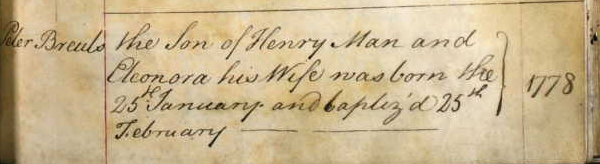 Peter Breuls the Son of Henry Man and
Eleonora his Wife was born the
25th January and baptiz'd 25th 1778
February